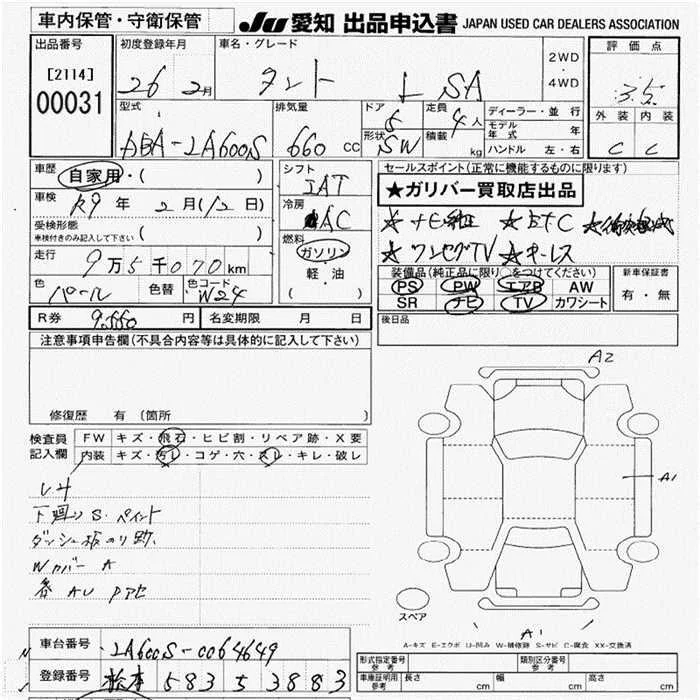 車内保管・守衛保管
JU 愛知 出品申込書 JAPAN USED CAR DEALERS ASSOCIATION
出品番号 [2114] 00031
初度登録年月 26 2月
車名・グレード タント L SA
2WD ・ 4WD
評価点 3.5
外装 C 内装 C
型式 ABA-LA600S
排気量 660 CC
ドア 5 形状 SW
定員 4人 積載 kg
ディーラー・並行
モデル年式 年
ハンドル 左・右
車歴 自家用・( )
車検 R9年 2月(12日)
受検形態 車検付きのみ記入して下さい ( )
走行 9万5千070km
色 パール 色替 色コード W24
シフト IAT
冷房 AC
燃料 ガソリン 軽・油 ( )
セールスポイント(正常に機能するものに限ります)
★ガリバー買取店出品
★ナビ純正 ★ETC
★ワンセグTV ★キーレス
装備品(純正品に限り○をつけてください)
PS PW エアB AW
SR ナビ TV カワシート
新車保証書 有・無
R券 9,660円 名変期限 月 日
後日品
注意事項申告欄(不具合内容等は具体的に記入して下さい)
修復歴 有 (箇所
検査員記入欄
FW キズ・飛石・ヒビ割・リペア跡・X要
内装 キズ・汚レ・コゲ・穴・スレ・キレ・破レ
下廻りS.ペイント
ダッシュ板のり跡.
WカバーA
各AU Pアセ
A2
A1
スペア
A1
A-キズ E-エクボ U-凹み W-補修跡 S-サビ C-腐食 XX-交換済
車台番号 LA600S-0064649
登録番号 松本 583 5 3883
形式指定番号 参考 類別区分番号 参考
車庫証明用 参考 長さ cm 幅 cm 高さ cm